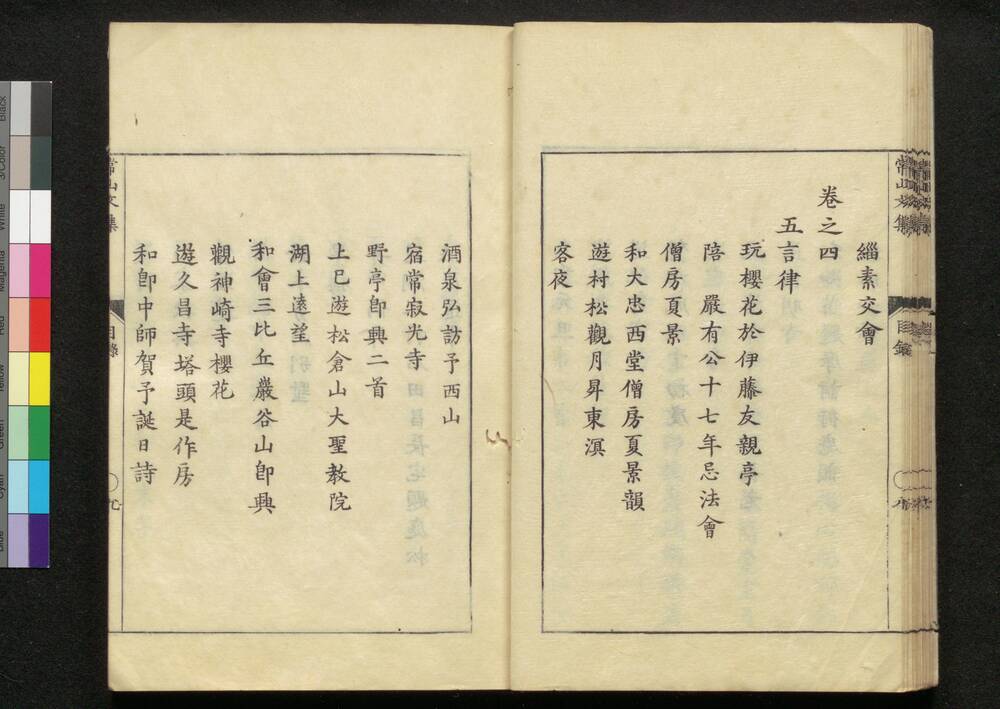 常山文集
緇素交會
卷之四
五言律
玩櫻花於伊藤友親亭
陪 嚴有公十七年忌法會
僧房夏景
和大忠西堂僧房夏景韻
遊村松觀月昇東溟
客夜
目錄
酒泉弘訪予西山
宿常寂光寺
野亭卽興二首
上巳遊松倉山大聖教院
湖上遠望
和會三比丘巖谷山卽興
觀神崎寺櫻花
遊久昌寺塔頭是作房
和卽中師賀予誕日詩
常山文集
目錄
九